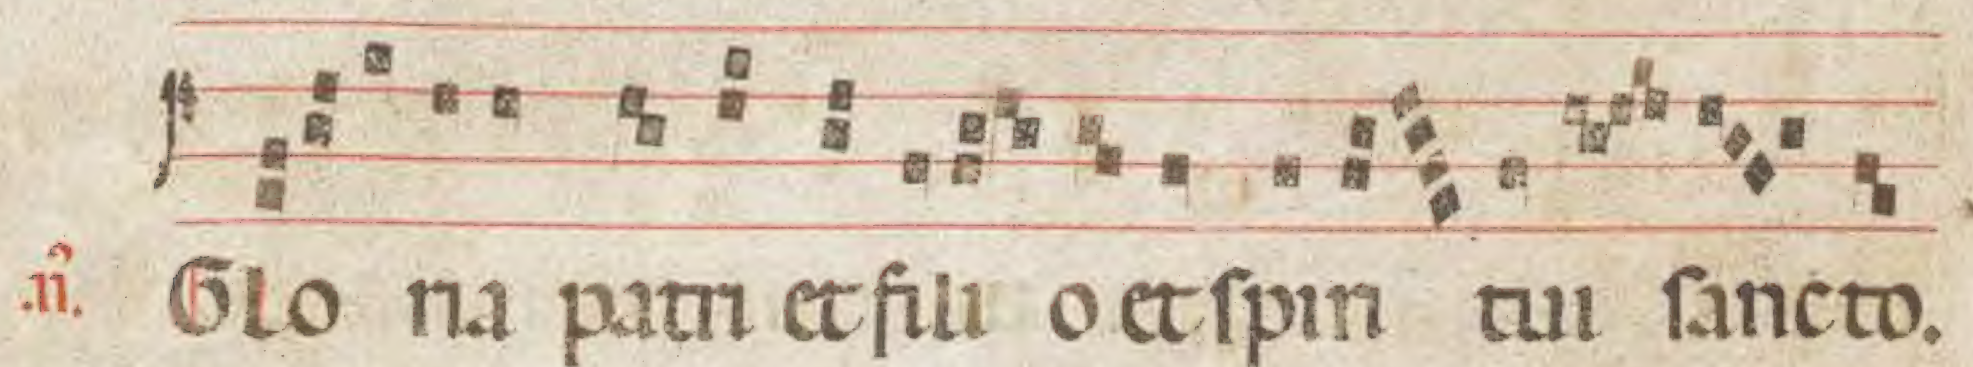 .ii. Glo ria patri et fili o et spiri tui sancto.